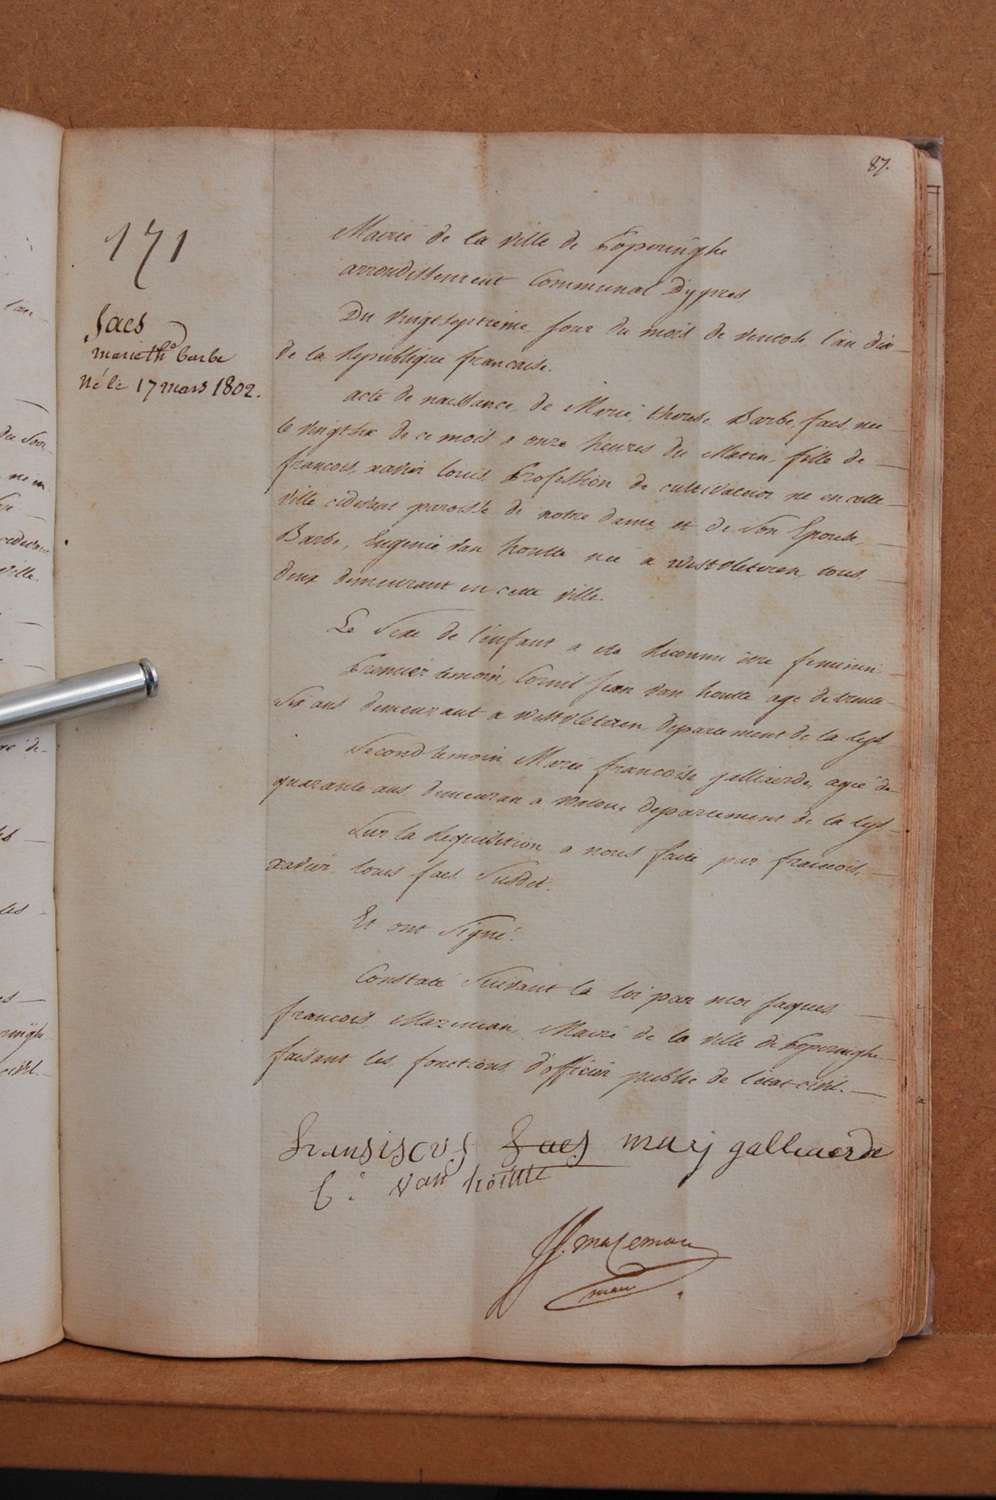 87.
171
faes
marie th. barbe
Né le 17 mars 1802.
Mairie de la ville de Poperinghe
arrondissement Communal D'ypres
Du vingt septieme jour du mois de ventose l'an dix
de la Republique francaise.
acte de naissance de Marie therese Barbe faes nee
le vingt six de ce mois a onze heures du Matin fille de
francois xavier louis Profession de cultivateur ne en cette
ville cidevant paroisse de notre dame et de son Epouse
Barbe, Eugenie Van houtte nee a westvleteren tous
deux demeurant en cette ville.
Le sexe de l'enfant a ete Reconnu etre feminin
Premier temoin, Cornil Jean Van houtte age de trente
six ans demeurant a westvleteren departement de la lys
Second temoin Marie francoise galliaerde, agee de
quarante ans demeuran a departement de la lys
Sur la Requisition a nous faite par francois,
xavier louis faes susdit.
Et ont signé.
Constaté suivant la loi par moi jaques
francois Mazeman Maire de la ville de Poperinghe
faisant les fonctions d'officier public de l'etat civil.
fransiscus faes marij galliaerde
C: van houtte
JJ. mazeman